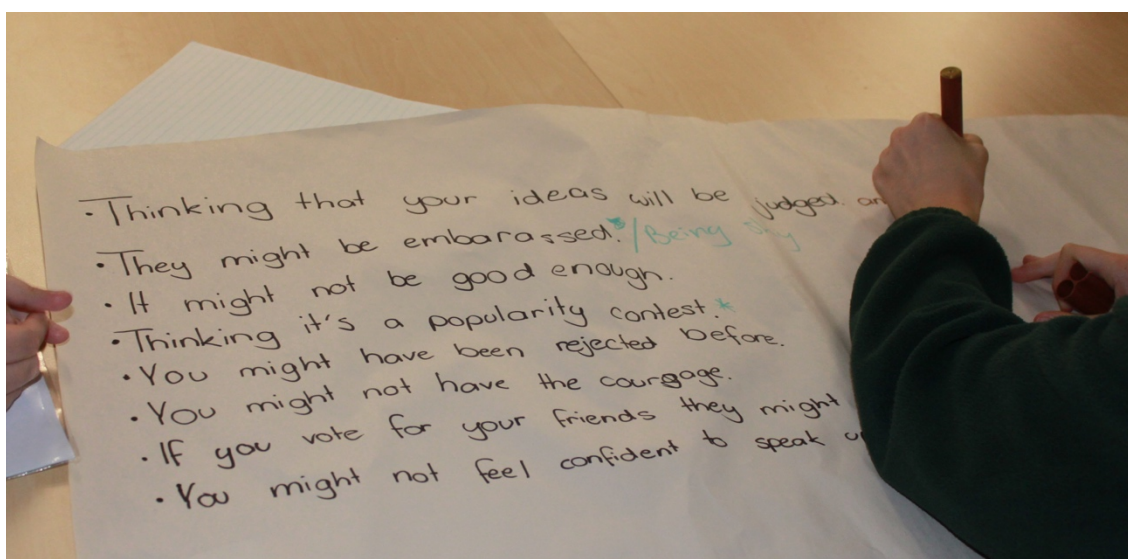 • Thinking that your ideas will be judged. an
• They might be embarassed.*/Being shy
• It might not be good enough.
• Thinking it's a popularity contest.*
• You might have been rejected before.
• You might not have the courgage.
• If you vote for your friends they might
• You might not feel confident to speak u